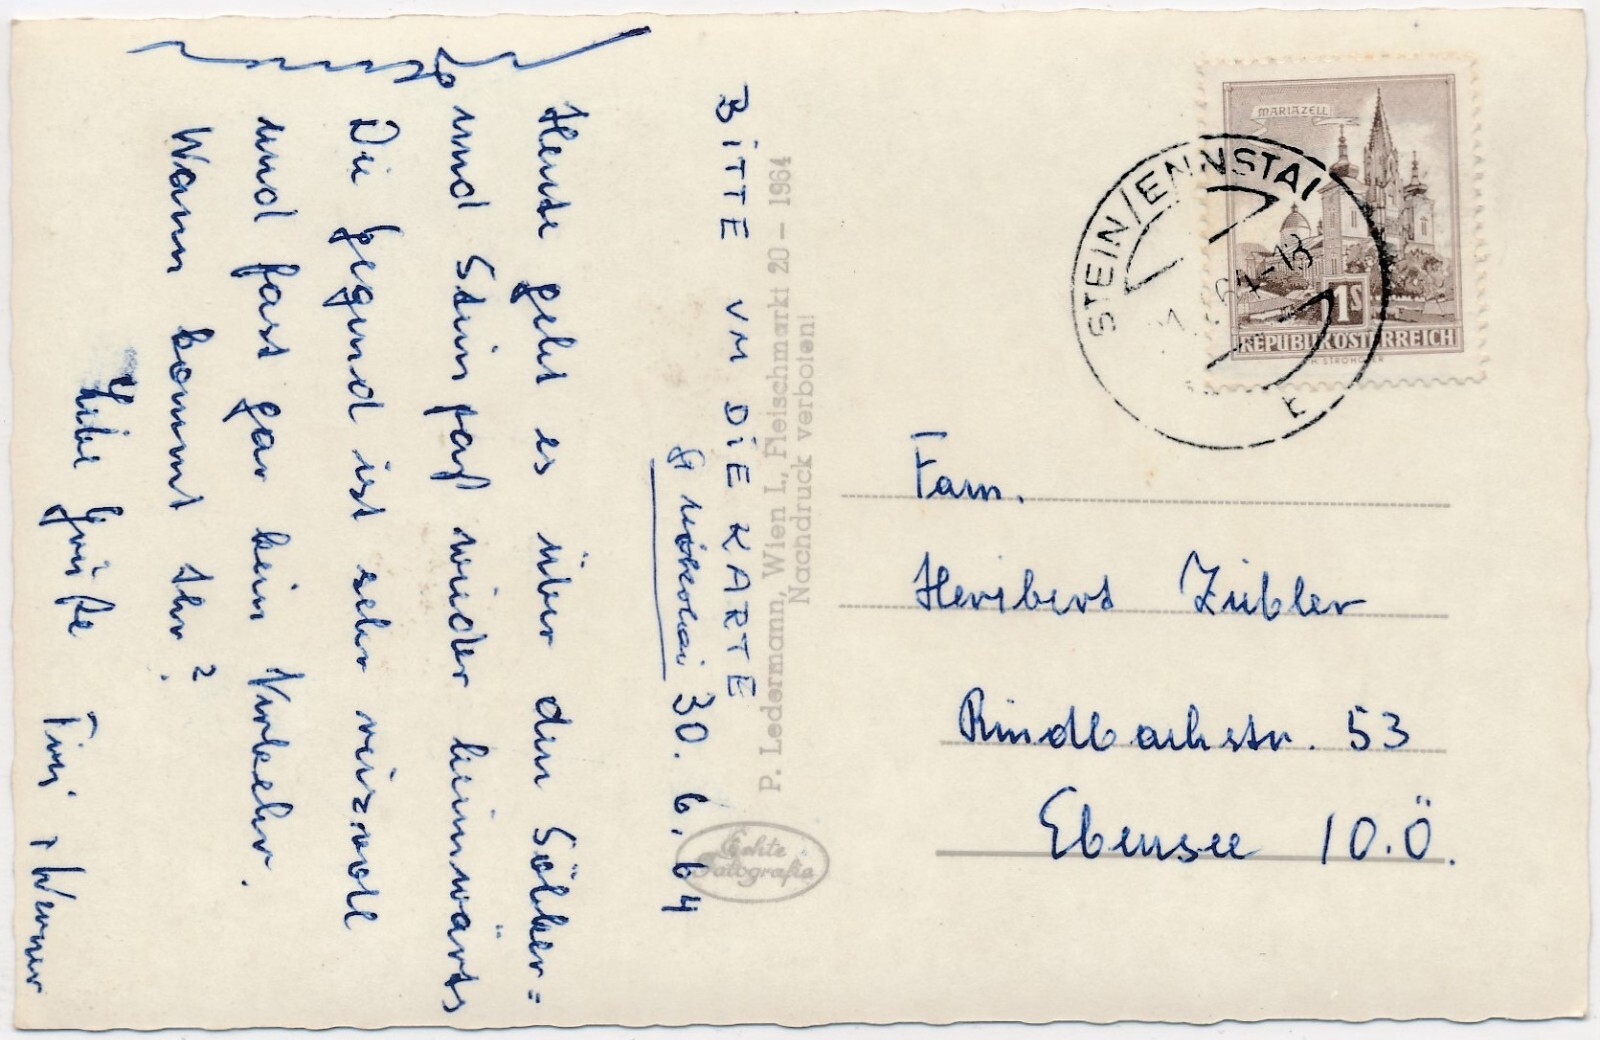 BITTE UM DIE KARTE
St nikolai 30. 6. 64
Heute geht es über den Sölker=
und Stein paß wieder heimwärts
Die Gegend ist sehr reizvoll
und fast gar kein Verkehr.
Wann kommt Ihr?
Liebe Grüße Fini, Werner
P. Ledermann, Wien I., Fleischmarkt 20 - 1964
Nachdruck verboten!
Echte
Fotografie
MARIAZELL
1S
REPUBLIK ÖSTERREICH
STEIN/ENNSTAL
64-13
Fam.
Heribert Zübler
Rindbachstr. 53
Ebensee /O.Ö.